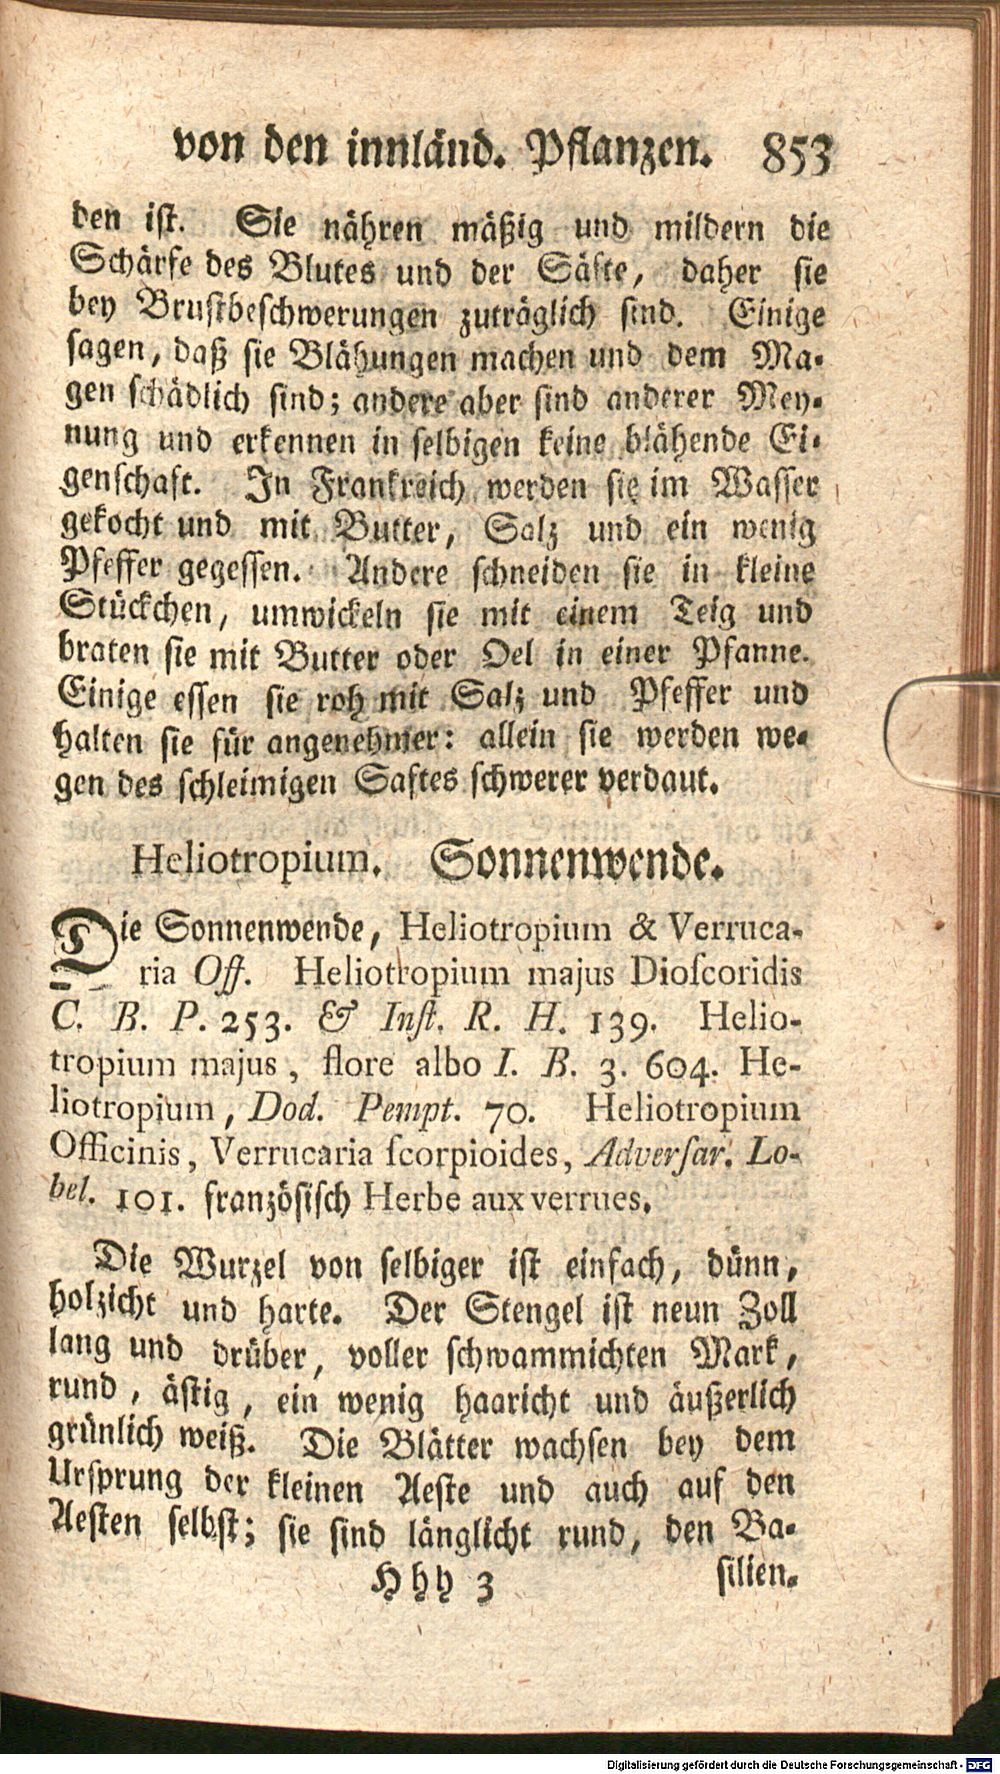 von den innländ. Pflanzen. 853
den ist. Sie nähren mäßig und mildern die
Schärfe des Blutes und der Säfte, daher sie
bey Brustbeschwerungen zuträglich sind. Einige
sagen, daß sie Blähungen machen und dem Ma-
gen schädlich sind; andere aber sind anderer Mey-
nung und erkennen in selbigen keine blähende Ei-
genschaft. In Frankreich werden sie im Wasser
gekocht und mit Butter, Salz und ein wenig
Pfeffer gegessen. Andere schneiden sie in kleine
Stückchen, umwickeln sie mit einem Teig und
braten sie mit Butter oder Oel in einer Pfanne.
Einige essen sie roh mit Salz und Pfeffer und
halten sie für angenehmer: allein sie werden we-
gen des schleimigen Saftes schwerer verdaut.
Heliotropium. Sonnenwende.
Die Sonnenwende, Heliotropium & Verruca-
ria Off. Heliotropium majus Dioſcoridis
C. B. P. 253. & Inſt. R. H. 139. Helio-
tropium majus, flore albo I. B. 3. 604. He-
liotropium, Dod. Pempt. 70. Heliotropium
Officinis, Verrucaria ſcorpioides, Adverſar. Lo-
bel. 101. französisch Herbe aux verrues.
Die Wurzel von selbiger ist einfach, dünn,
holzicht und harte. Der Stengel ist neun Zoll
lang und drüber, voller schwammichten Mark,
rund, ästig, ein wenig haaricht und äußerlich
grünlich weiß. Die Blätter wachsen bey dem
Ursprung der kleinen Aeste und auch auf den
Aesten selbst; sie sind länglicht rund, den Ba-
Hhh 3 silien-
Digitalisierung gefördert durch die Deutsche Forschungsgemeinschaft - DFG